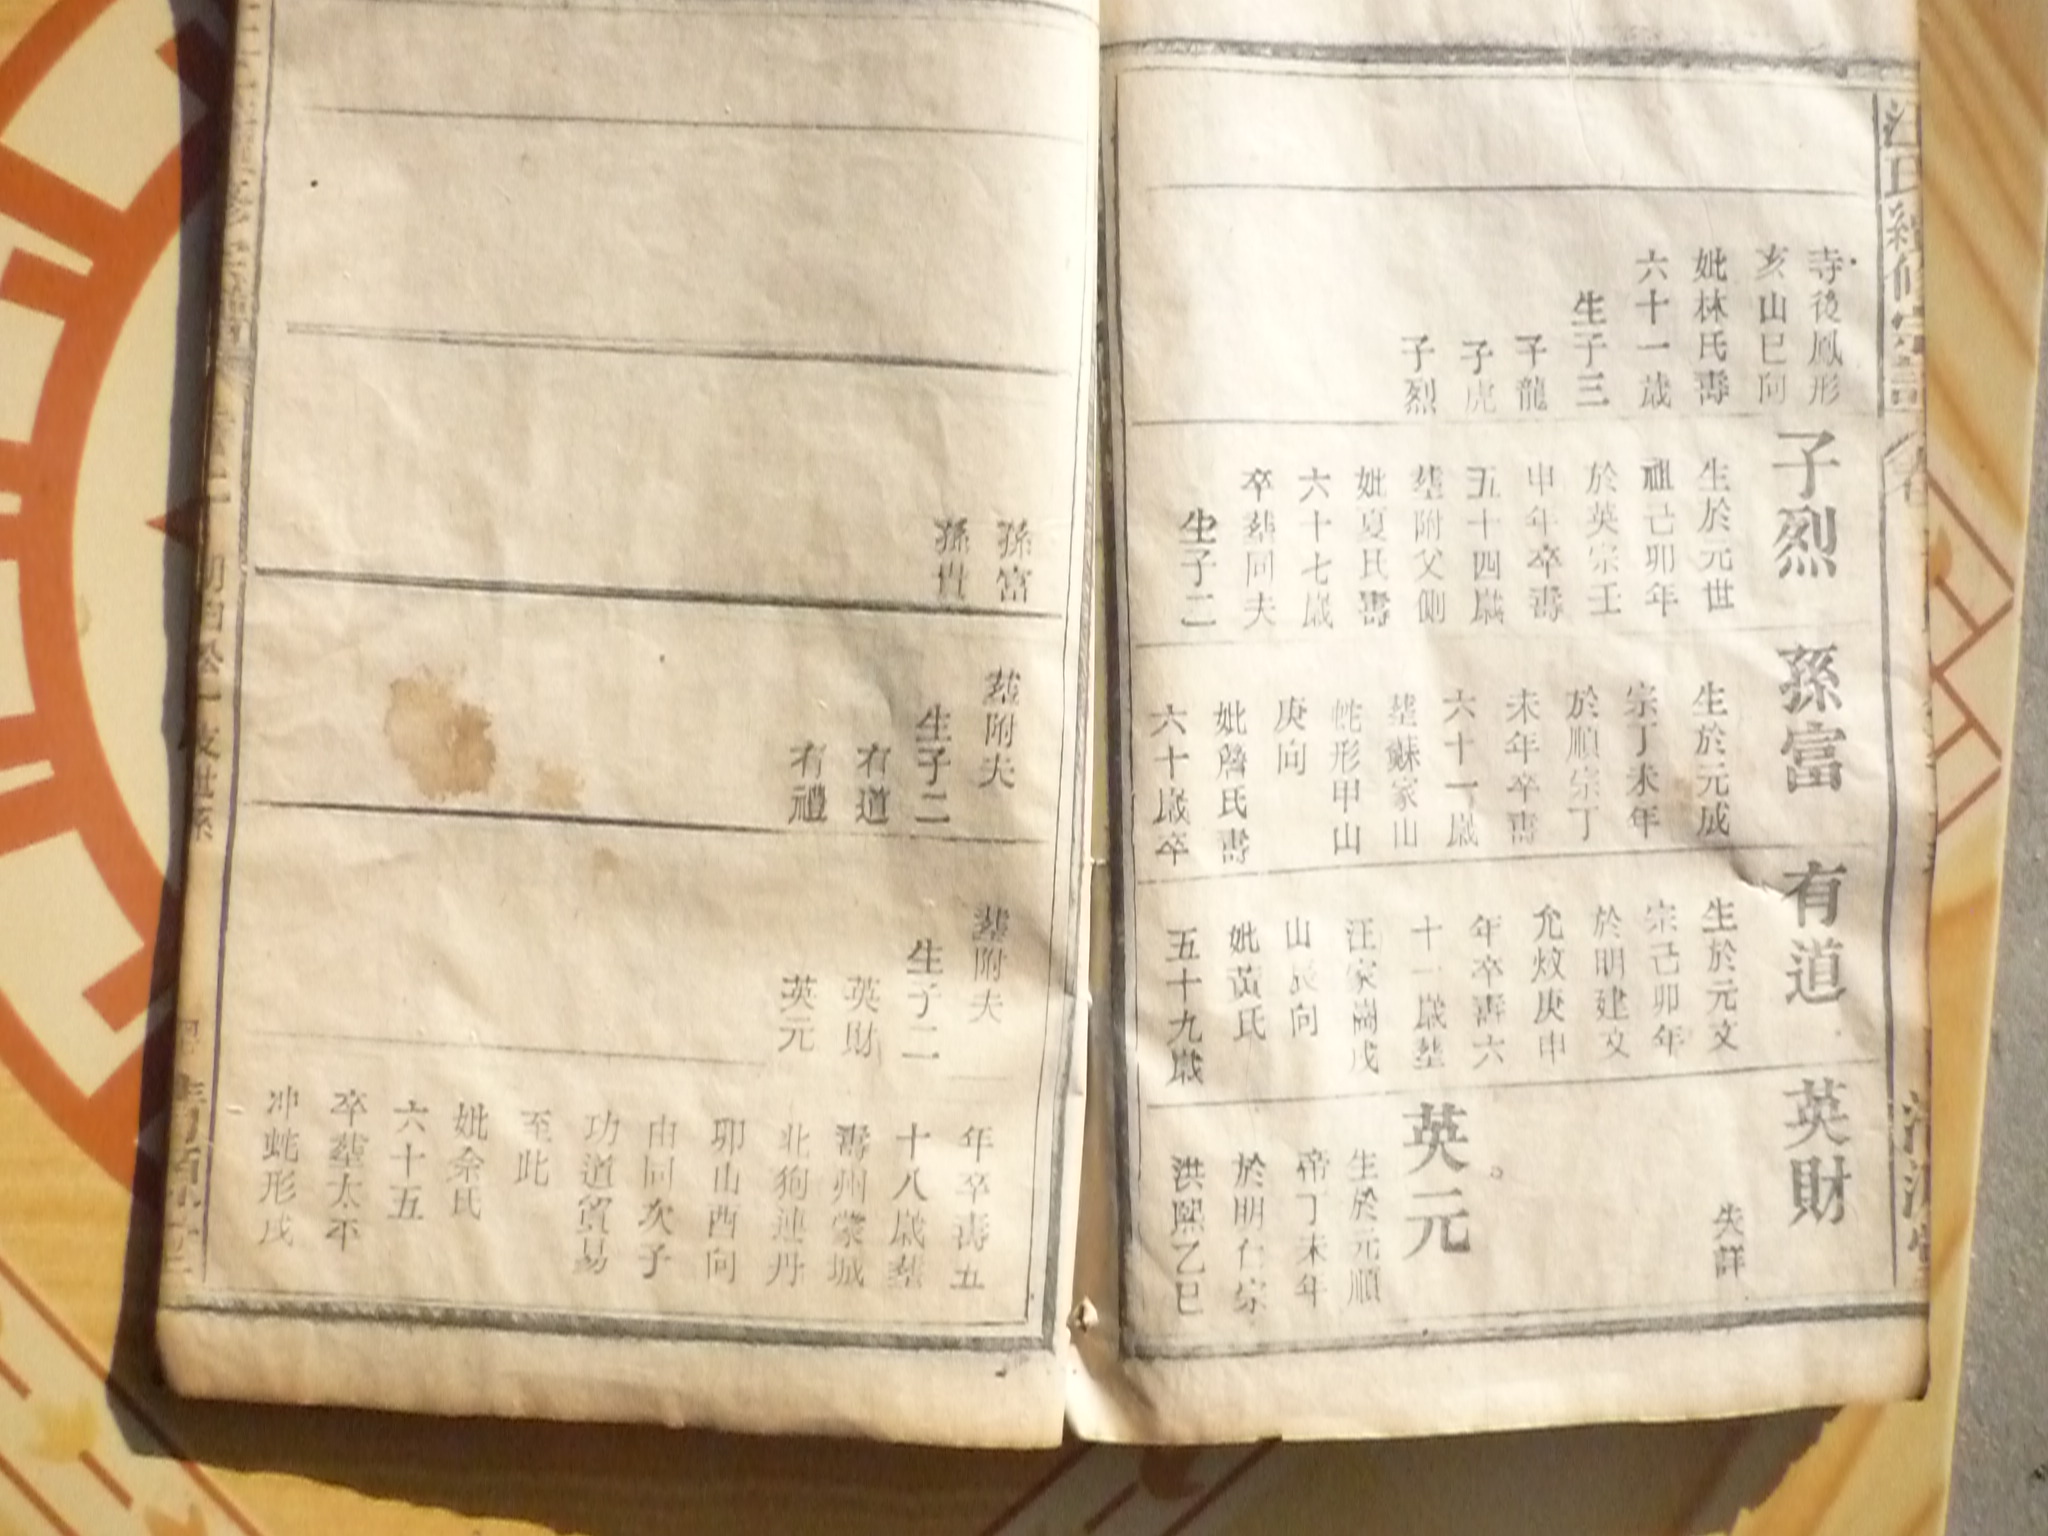 氏續修宗譜
寺後鳳形
亥山巳向
妣林氏壽
六十一歲
生子三
子龍
子虎
子烈
子烈
生於元世
祖己卯年
於英宗壬
申年卒壽
五十四歲
塟附父側
妣夏氏壽
六十七歲
卒塟同夫
生子二
孫富
生於元成
宗丁未年
於順宗丁
未年卒壽
六十一歲
塟蘇家山
蛇形甲山
庚向
妣詹氏壽
六十歲卒
有道
生於元文
宗己卯年
於明建文
允炆庚申
年卒壽六
十一歲塟
汪家崗戌
山辰向
妣黃氏
五十九歲
英財
失詳
英元
生於元順
帝丁未年
於明仁宗
洪熙乙巳
孫富
孫貴
塟附夫
生子二
有道
有禮
塟附夫
生子二
英財
英元
年卒壽五
十八歲塟
壽州蒙城
北狗連丹
卯山酉向
由同次子
功道貿易
至此
妣余氏
六十五
卒塟太平
冲蛇形戌
世系